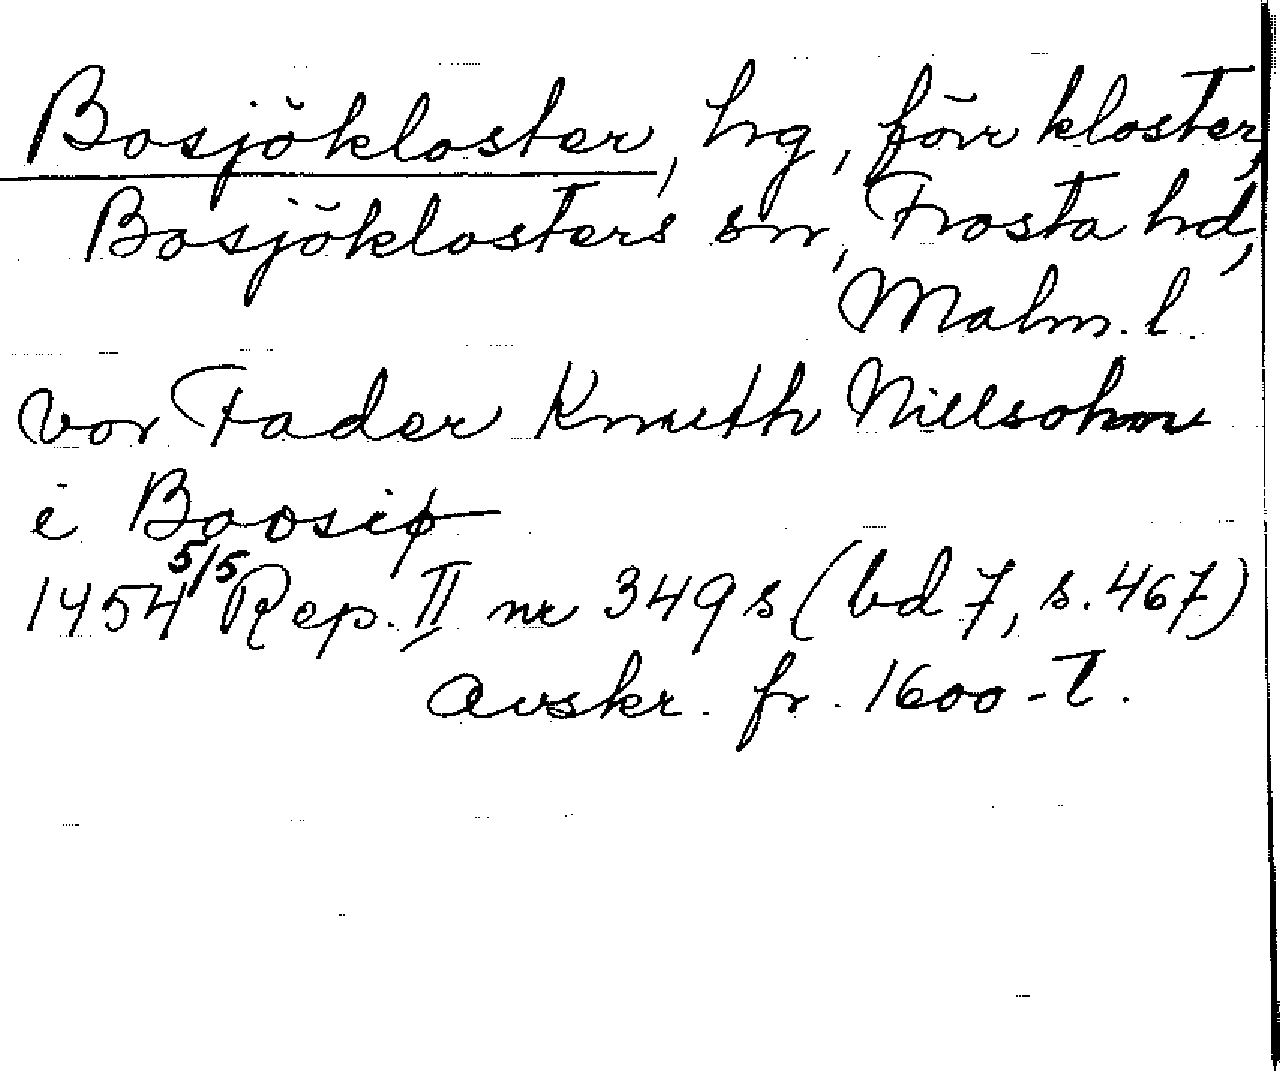 Bosjökloster, hg, förr kloster,
Bosjöklosters sn, Frosta hd,
Malm. l.
vor Fader Knuth Nillsohnn
i Boosiø
1454 5/5 Rep. II nr 349 s (bd 7, s. 467)
Avskr. fr. 1600-t.